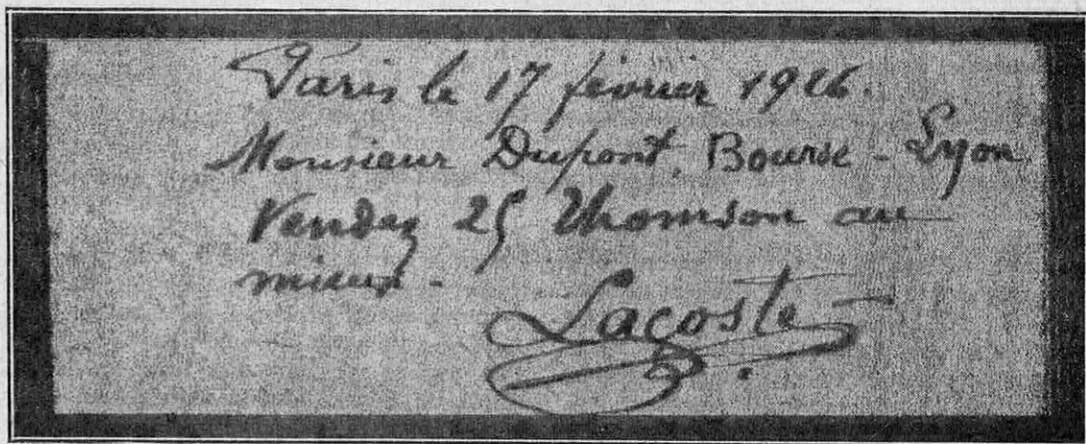 Paris le 17 février 1926.
Monsieur Dupont, Bourse - Lyon
Vendez 25 Thomson au
mieux -
Lacoste